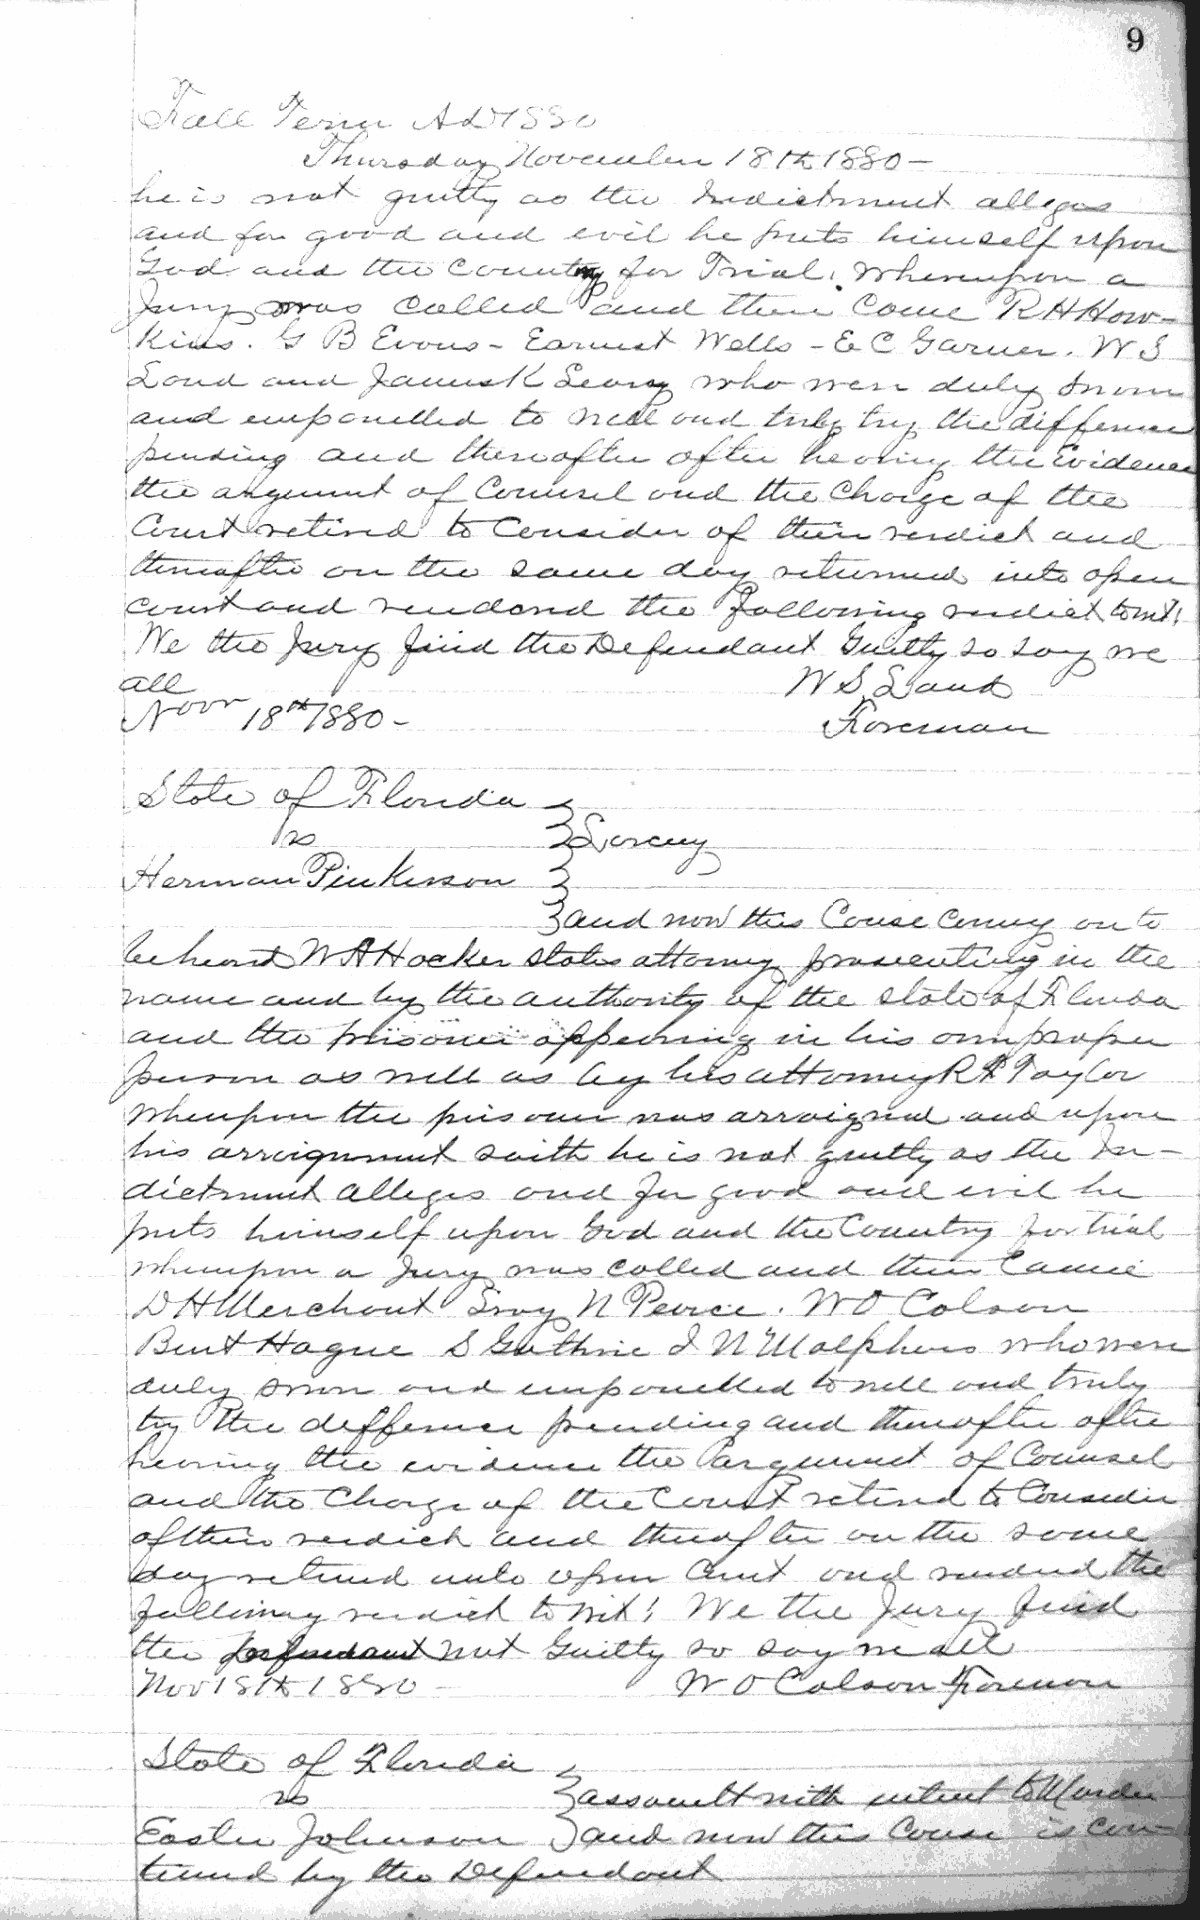 9
Fall Term AD 1880
Thursday November 18th 1880-
he is not guilty as the Indictment alleges
and for good and evil he puts himself upon
God and the country for Trial. Whereupon a
Jury was called and then Come R H How-
kins. G B Evans - Earnest Wells - E C Garner. W S
Land and James K Leavy who were duly sworn
and empanelled to well and truly try the difference
pending and thereafter after hearing the Evidence
the argument of Counsel and the Charge of the
Court retired to Consider of their verdict and
thereafter on the same day returned into open
court and rendered the following verdict to wit:
We the Jury find the Defendant Guilty so say we
all W S Land
Novr 18th 1880- Foreman
State of Florida
vs Larceny
Herman Pinkerson
and now this Cause coming on to
be heard W A Hocker states attorney prosecuting in the
name and by the authority of the state of Florida
and the prisoner appearing in his own proper
person as well as by his attorney R F Taylor
Whereupon the prisoner was arraigned and upon
his arraignment saith he is not guilty as the In-
dictment alleges and for good and evil he
puts himself upon God and the Country for trial
whereupon a Jury was called and then Came
D H Merchant N Peirce. W O Colson
Bent Hague S Guthrie J N Malphers who were
duly sworn and empanelled to well and truly
try the defference pending and thereafter after
hearing the evidence the argument of Counsel
and the Charge of the Court retired to Consider
of their verdict and thereafter on the same
day returned into open Court and rendered the
following verdict to wit: We the Jury find
the Defendant not Guilty so say we all
Nov 18th 1880 - W O Colson Foreman
State of Florida
vs assault with intent to Murder
Easter Johnson and now this Cause is con-
tinued by the Defendant